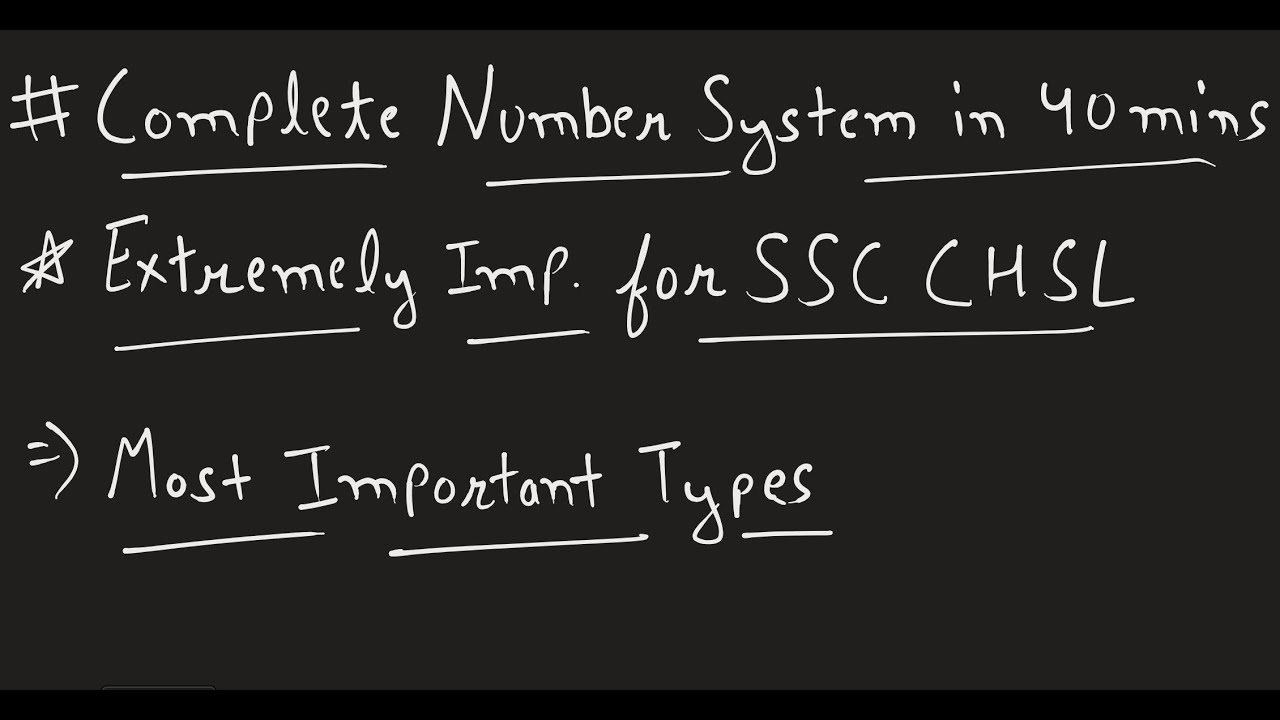 # Complete Number System in 40 mins
☆ Extremely Imp. for SSC CHSL
⇒ Most Important Types